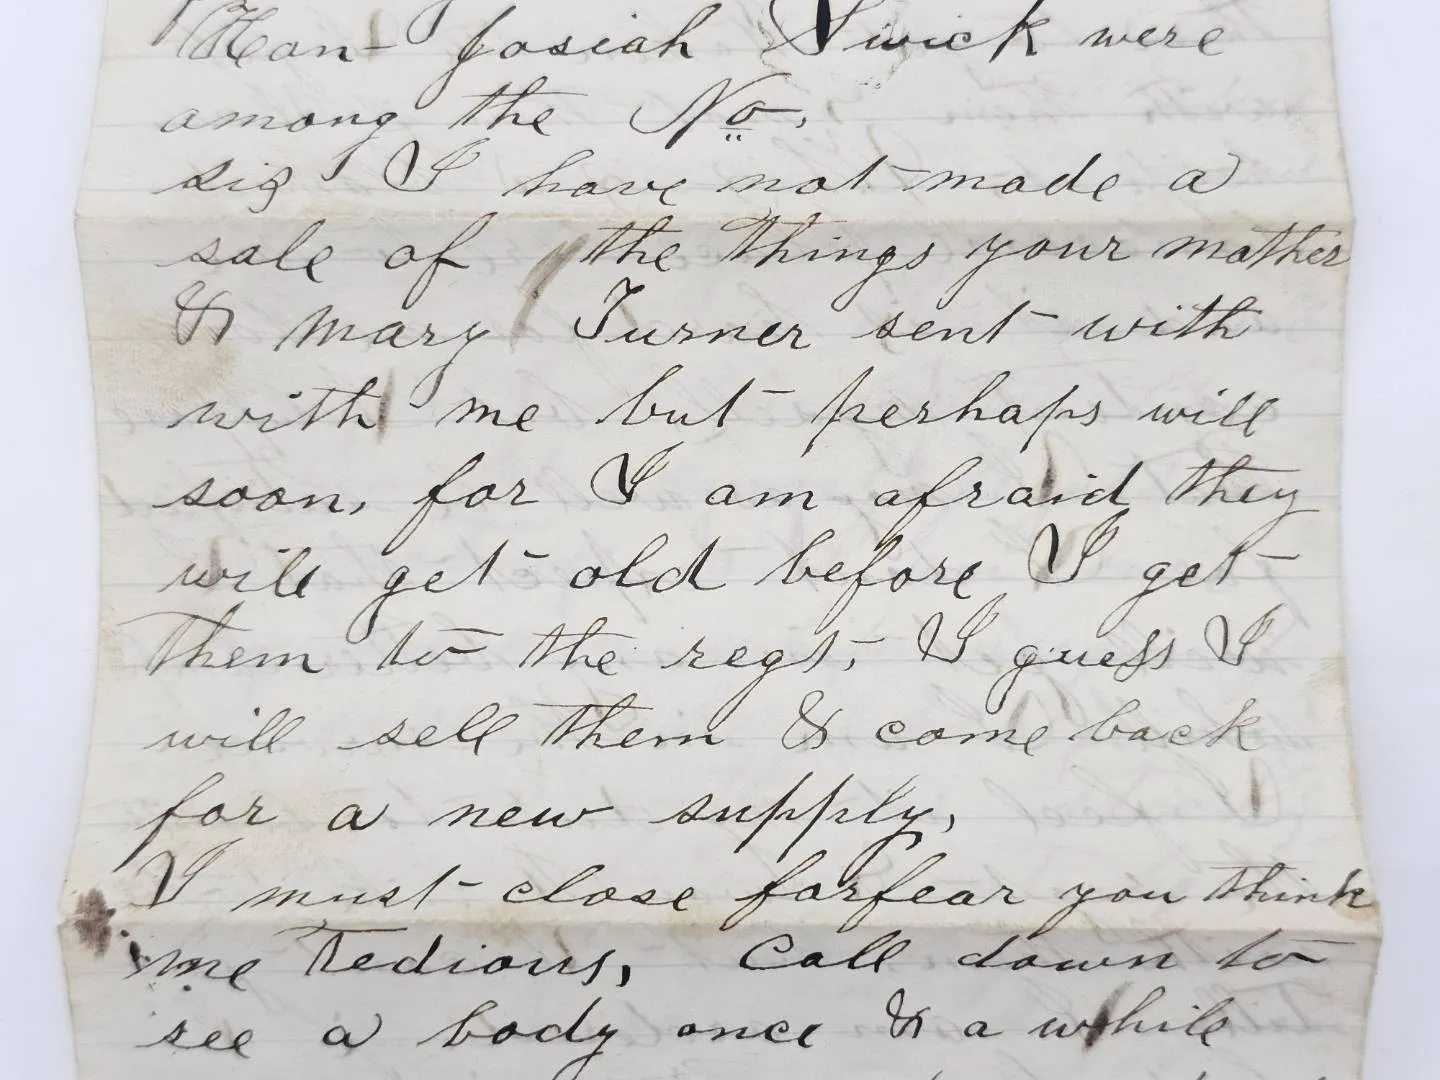 Hon- Josiah Swick were
among the No.
sig I have not made a
sale of the things your mother
& mary Turner sent with
with me but perhaps will
soon, for I am afraid they
will get old before I get
them to the regt, I guess I
will sell them & come back
for a new supply,
I must close forfear you think
me Tedious, Call down to
see a body once & a while